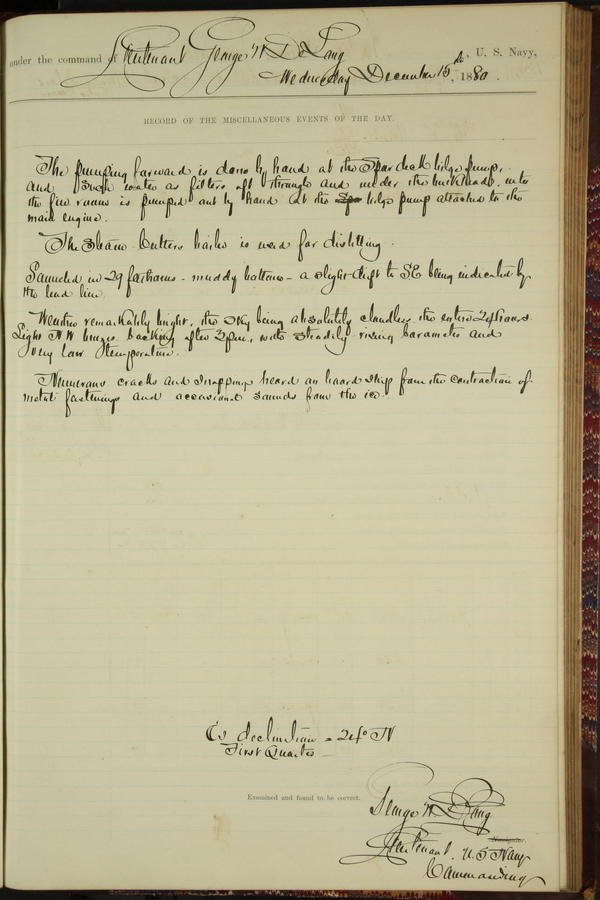 under the command of Lieutenant George W. De Long, U. S. Navy,
Wednesday December 15th, 1880.
RECORD OF THE MISCELLANEOUS EVENTS OF THE DAY.
The pumping forward is done by hand at the Spar deck bilge pump,
and such water as filters aft through and under the bulkheads into
the fire room is pumped out by hand at the bilge pump attached to the
main engine.
The Steam Cutters boiler is used for distilling.
Sounded in 29 fathoms - muddy bottom - a slight drift to SE being indicated by
the lead line.
Weather remarkably bright, the sky being absolutely cloudless the entire 24 hours.
Light N.W. breezes backing after 3 pm, with steadily rising barometer and
very low temperature.
Numerous cracks and snappings heard on board ship from the contraction of
metal fastenings and occasional sounds from the ice.
C's declination = 24° N
First Quarter
Examined and found to be correct.
George W. De Long
Navigator.
Lieutenant, U.S. Navy
Commanding